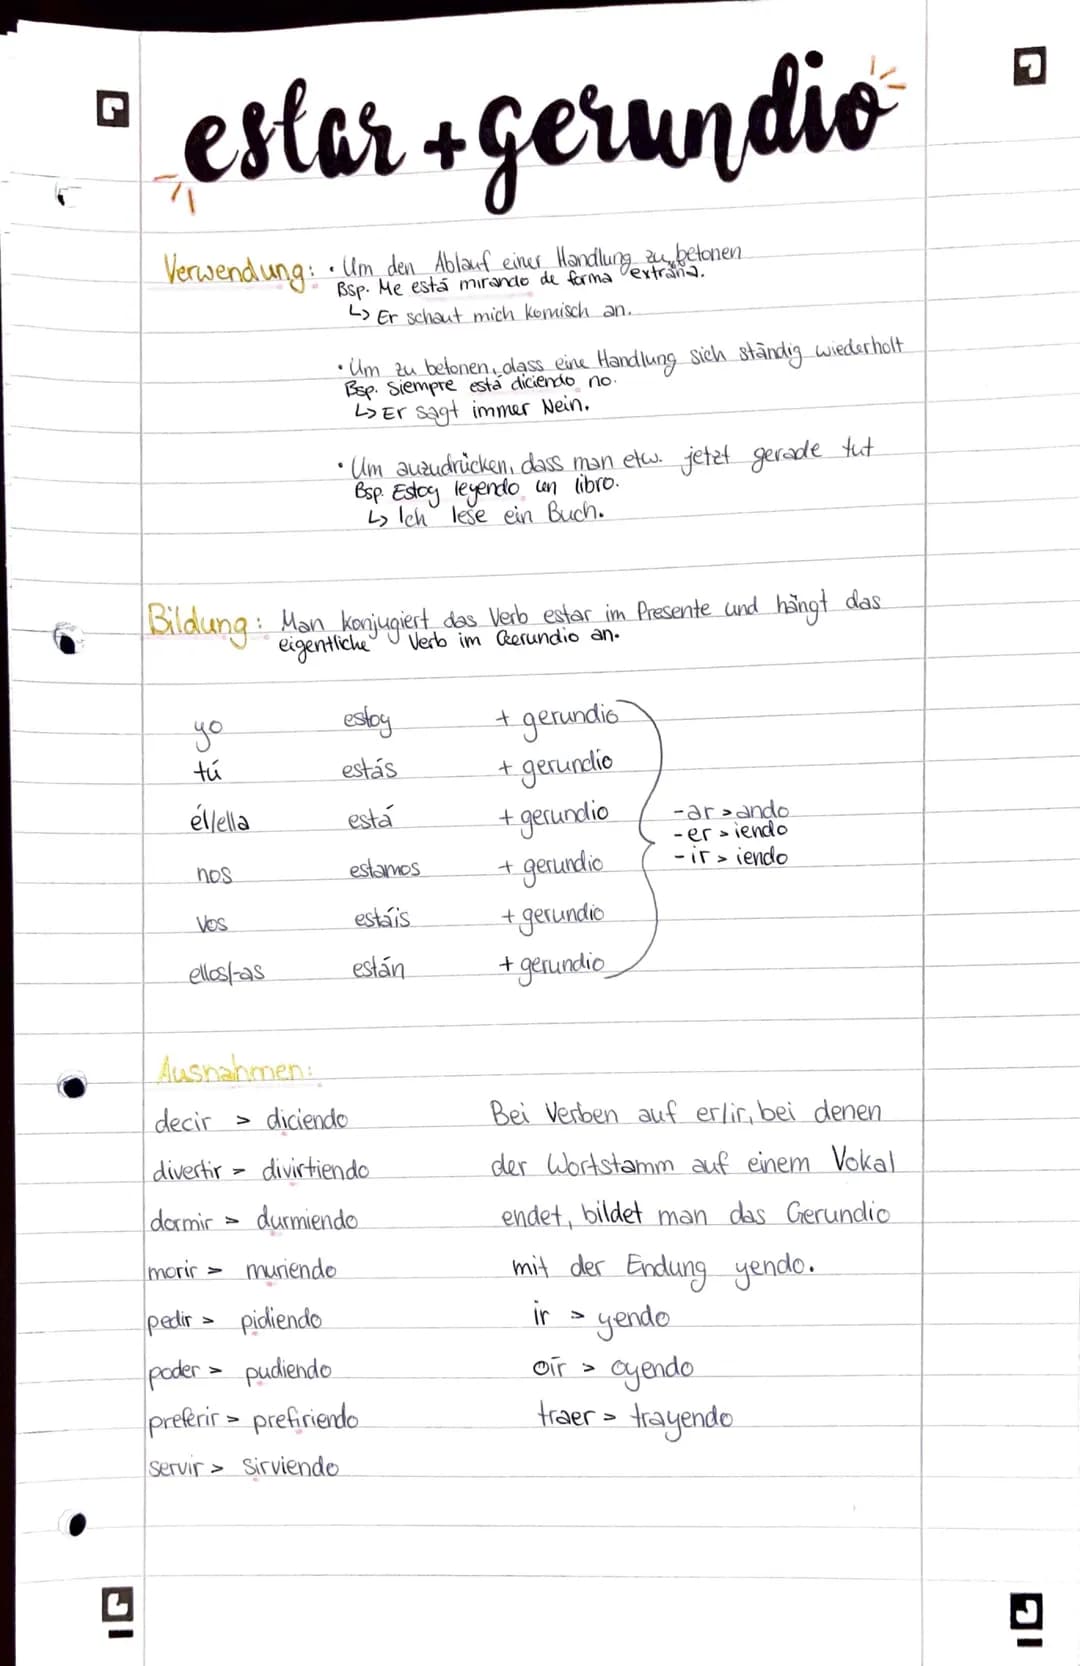 estar + gerundio
Verwendung: • Um den Ablauf einer Handlung zu betonen
Bsp. Me está mirando de forma extraña.
↳ Er schaut mich komisch an.
• Um zu betonen, dass eine Handlung sich ständig wiederholt
Bsp. Siempre está diciendo no.
↳ Er sagt immer Nein.
• Um auzudrücken, dass man etw. jetzt gerade tut
Bsp. Estoy leyendo un libro.
↳ Ich lese ein Buch.
Bildung: Man konjugiert das Verb estar im Presente und hängt das
eigentliche Verb im Gerundio an.
yo estoy + gerundio
tú estás + gerundio
él/ella está + gerundio
nos estamos + gerundio
vos estáis + gerundio
ellos/-as están + gerundio
-ar > ando
-er > iendo
-ir > iendo
Ausnahmen:
decir > diciendo
divertir > divirtiendo
dormir > durmiendo
morir > muriendo
pedir > pidiendo
poder > pudiendo
preferir > prefiriendo
servir > sirviendo
Bei Verben auf er/ir, bei denen
der Wortstamm auf einem Vokal
endet, bildet man das Gerundio
mit der Endung yendo.
ir > yendo
oír > oyendo
traer > trayendo